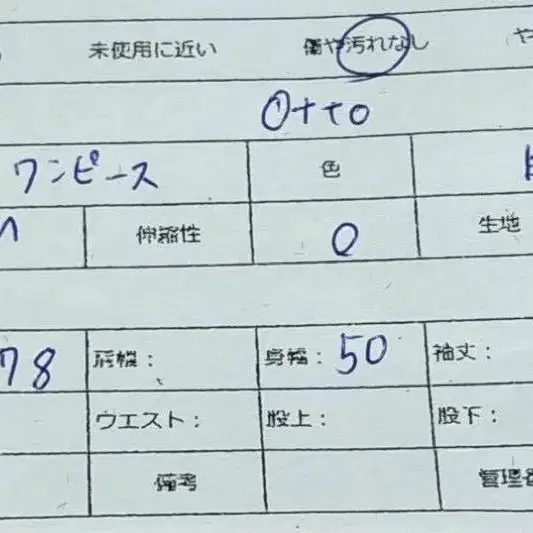 未使用に近い 傷や汚れなし や
Otto
ワンピース 色
伸縮性 0 生地
78 肩幅： 身幅：50 袖丈：
ウエスト： 股上： 股下：
備考 管理